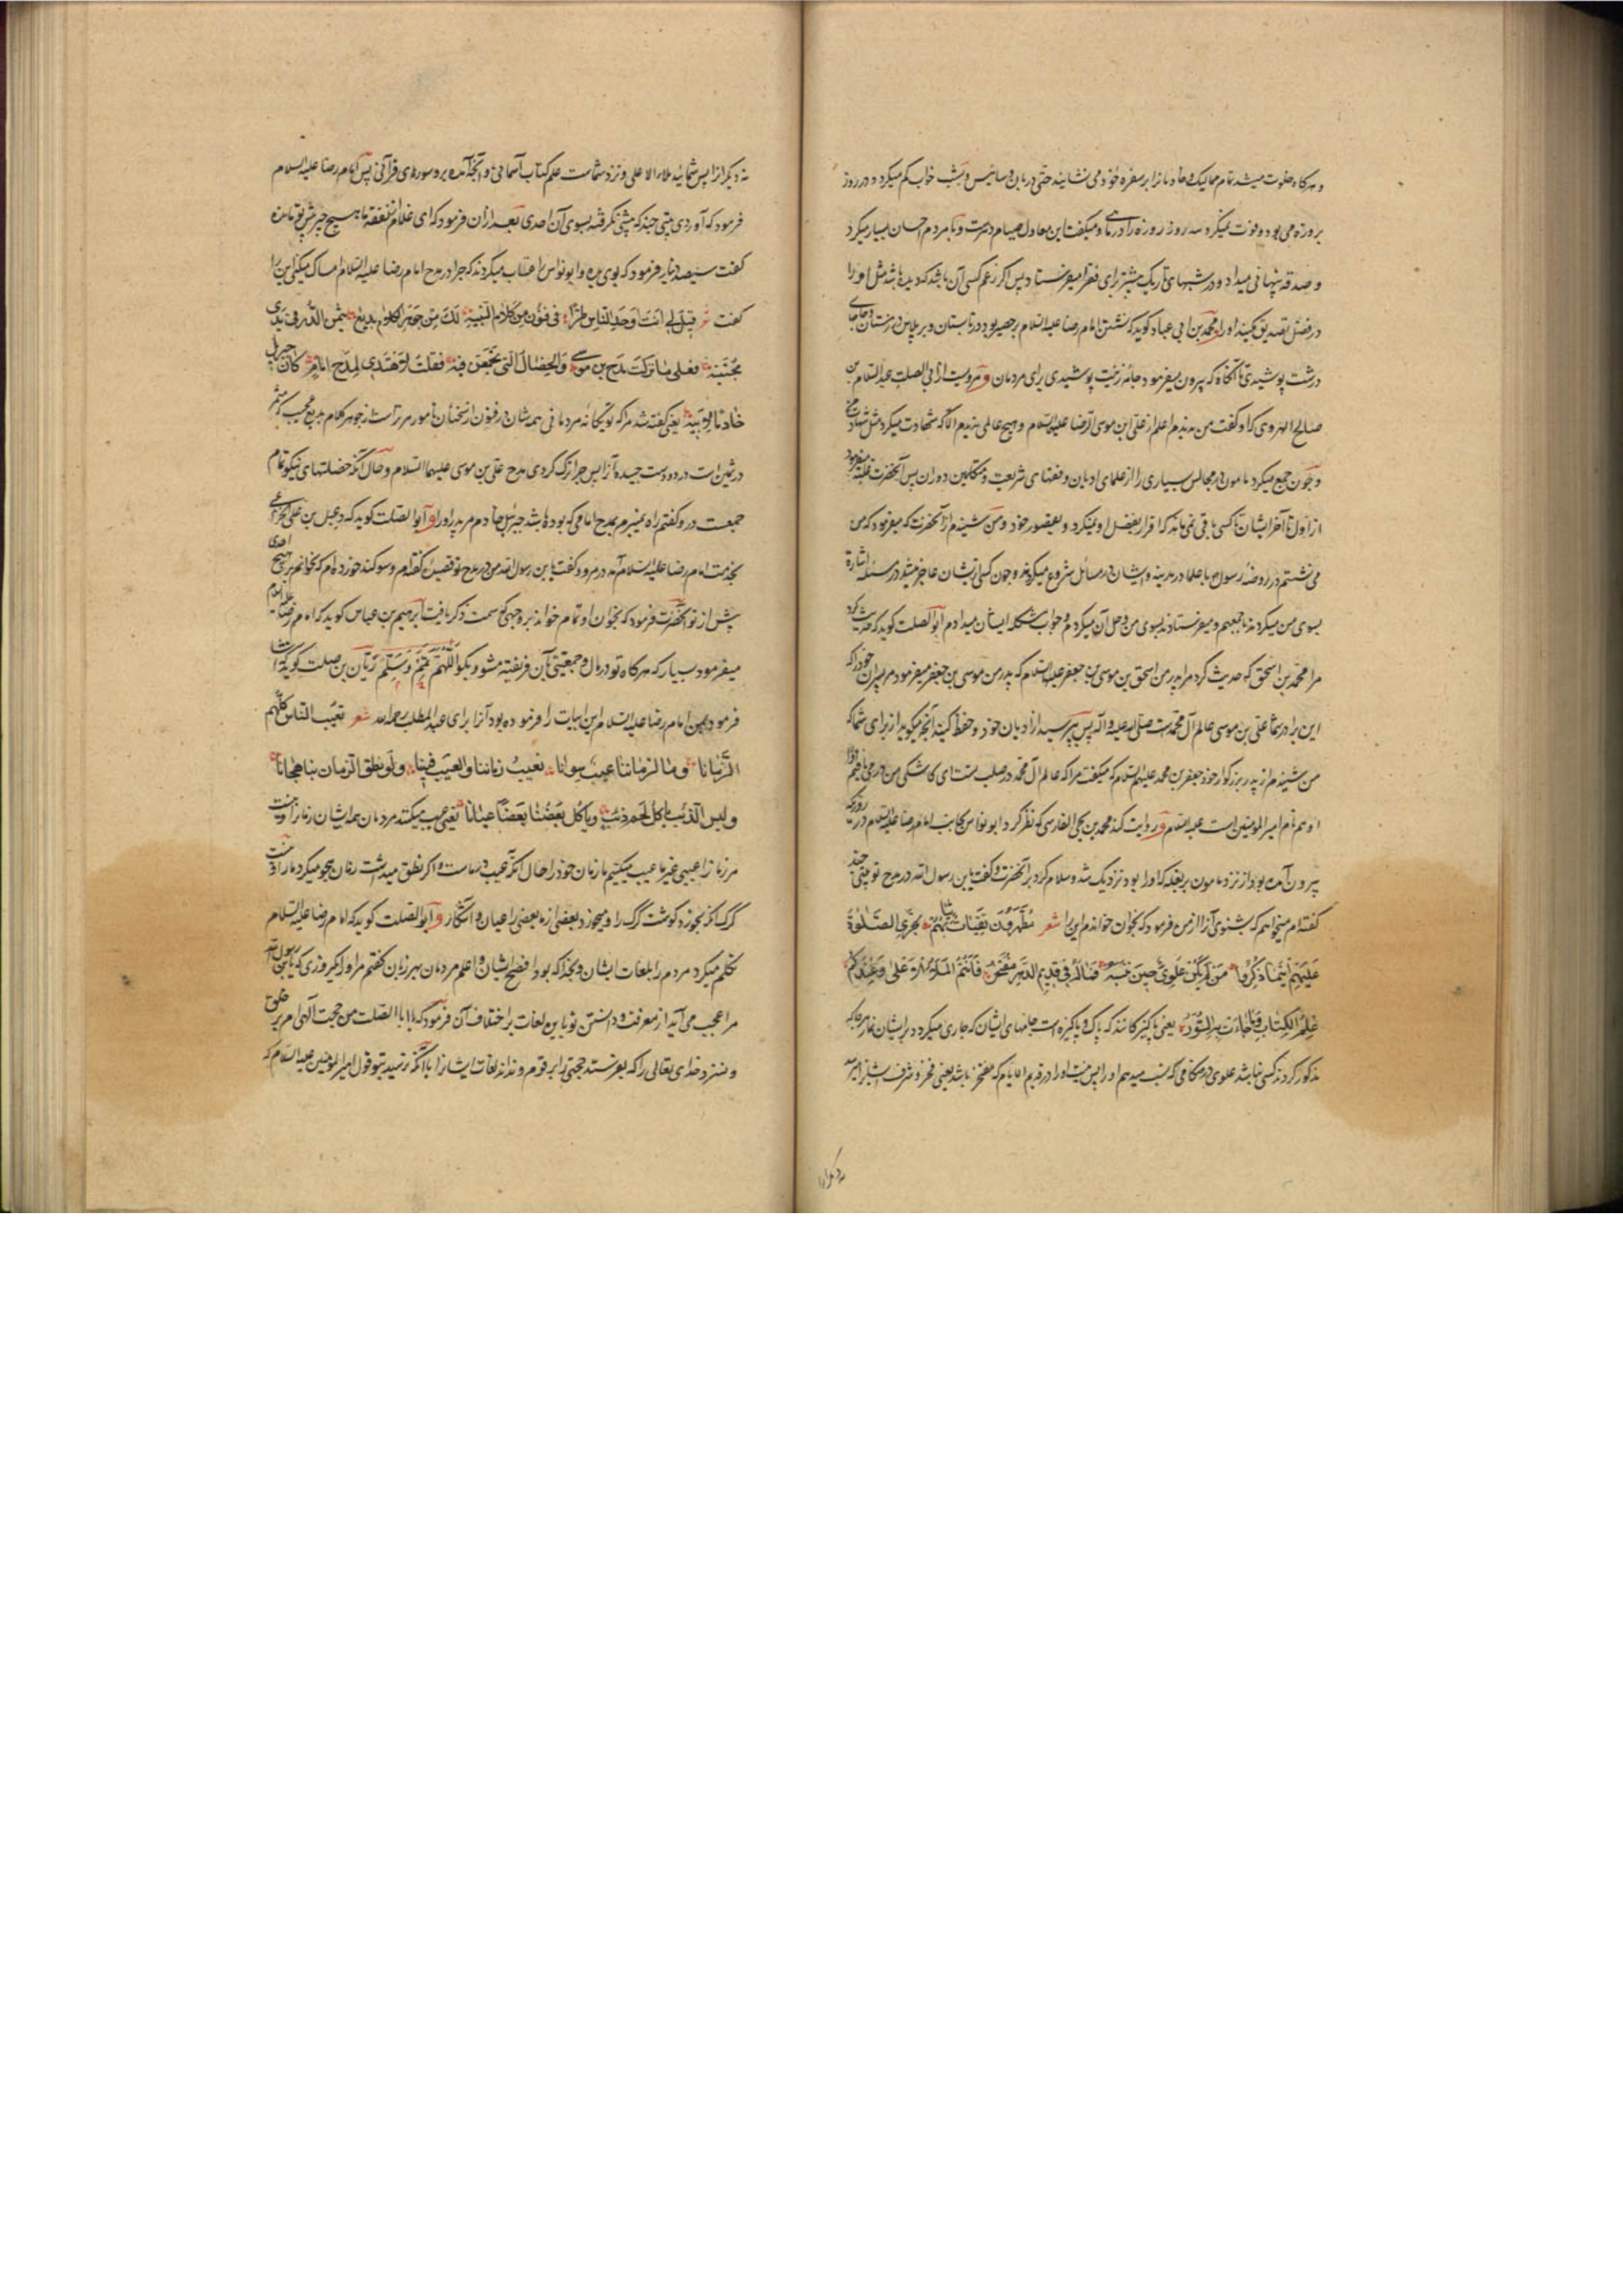 و هرگاه خلوت میشد تمام ممالیک و خادمانرا بر سفره خود می نشانید حتی دربان و سائیس و بشب خواب کم میکرد و در روز
بروزه می بود و فوت نمیکرد سه روز روزه را در ماهی و میگفت این معادل صیام دهرست و با مردم احسان بسیار میکرد
و صدقه پنهانی میداد و در شبهای تاریک بیشتر برای فقرا میفرستاد پس اگر زعم کسی آن باشد که دیده باشد مثل او را
در فضل تصدیق مکنید او را و محمد بن ابی عباد گوید که نشستن امام رضا علیه السلام بر حصیر بود در تابستان و بر پلاس در زمستان و جامهای
درشت پوشیدی تا آنگاه که بیرون میفرمود جامه زینت پوشیدی برای مردمان و مرویست از ابی الصلت عبد السلام بن
صالح الهروی که او گفت من ندیدم اعلم از علی ابن موسی الرضا علیه السلام و هیچ عالمی ندیدم الا که شهادت میکرد مثل شهادت من
و چون جمع میکرد مامون در مجالس بسیاری را از علمای ادیان و فقهای شریعت و متکلمین پس آنحضرت غلبه میفرمود
از اول تا آخر ایشان تا کسی باقی نمی ماند که اقرار بفضل او نمیکرد و بقصور خود و من شنیدم از آنحضرت که میفرمود که من
می نشستم در روضه رسول و با علما در مدینه و ایشان در مسائل شروع میکردند و چون کسی از ایشان عاجز میشد در مسئله اشاره
بسوی من میکردند باجمعهم و میفرستادند بسوی من و حل آن میکردم و جواب مشکله ایشان میدادم ابو الصلت گوید که حدیث کرد
مرا محمد بن اسحق که حدیث کرد مرا پدر من اسحق بن موسی بن جعفر علیه السلام که پدر من موسی بن جعفر میفرمود مر پسران خود را که
این برادر شما علی بن موسی عالم آل محمدست صلی الله علیه و اله پس بپرسید از ادیان خود و حفظ کنید آنچه میگوید از برای شما که
من شنیدم از پدر بزرگوار خود جعفر بن محمد علیهما السلام که میگفت مرا که عالم آل محمد در صلب تست ای کاشکی من درمی یافتم او را
او هم نام امیر المومنین است علیه السلام و روایت کند محمد بن یحیی الفارسی که نظر کرد ابو نواس بجانب امام رضا علیه السلام در روزیکه
بیرون آمده بود از نزد مامون بر بغله که او را بود نزدیک شد و سلام کرد بر آنحضرت و گفت یابن رسول الله در مدح تو بیتی چند
گفته ام میخواهم که بشنوی آنرا از من فرمود که بخوان خواندم این را شعر مطهرون نقیات ثیابهم تجری الصلوة
علیهم اینما ذکروا من لم یکن علوی حین تنسبه فما له فی قدیم الدهر مفتخر فانتم الملاء الاعلی و عندکم
علم الکتاب و ما جاءت به السور یعنی پاکیزگانند که پاک و پاکیزه است جامهای ایشان که جاری میگردد بر ایشان نماز هر جا که
مذکور گردند کسی نباشد علوی در هنگامی که نسبت میدهم او را پس نیست او را در قدیم الایام که مفتخر باشد یعنی فخر و شرف
نه دیگرانرا
نه دیگرانرا پس شمائید ملاء الاعلی و نزد شماست علم کتاب آسمانی و آنچه آمده برو سورهای قرآنی پس امام رضا علیه السلام
فرمود که آوردی بیتی چند که پیشی نگرفته بسوی آن احدی بعد ازان فرمود که ای غلام از نفقه ما هیچ چیز پیش تو مانده
گفت سیصد دینار فرمود که بوی بده و ابو نواس را عتاب میکردند که چرا در مدح امام رضا علیه السلام امساک میکنی این را
گفت شعر قیل لی انت اوحد الناس طرا فی فنون من کلام النبیه لک من جوهر الکلام بدیع یثمر الدر فی یدی
مجتنیه فعلی ما ترکت مدح بن موسی و الخصال التی تجمعن فیه فقلت لا اهتدی لمدح امام کان جبریل
خادما لابیه یعنی گفته شد مرا که تو یگانه مردمانی همه شان در فنون از سخنان نامور مر تراست از جوهر کلام بدیع عجیب که مثمر
در ثمین است در دو دست چیننده آن پس چرا ترک کردی مدح علی بن موسی علیهما السلام و حال آنکه خصلتهای نیکو تمام
جمعست درو گفتم راه نمی برم بمدح امامی که بوده باشد جبرئیل خادم مر پدر او را و ابو الصلت گوید که دعبل بن علی الخزاعی
بخدمت امام رضا علیه السلام آمد در مرو و گفت یابن رسول الله من در مدح تو قصیده گفته ام و سوگند خورده ام که نخوانم بر هیچ احدی
پیش از تو آنحضرت فرمود که بخوان او تمام خواند بر وجهی که سمت ذکر یافت ابرهیم بن عباس گوید که امام رضا علیه السلام
میفرمود بسیار که هرگاه تو در مال و جمعیتی بآن فریفته مشو و بگو اللهم تمم و سلم ریان بن صلت گوید که انشا
فرمود بمن امام رضا علیه السلام این ابیات را فرموده بود آنرا برای عبد المطلب رحمه الله شعر یعیب الناس کلهم
الزمانا و ما لزماننا عیب سوانا نعیب زماننا و العیب فینا و لو نطق الزمان بنا هجانا
و لیس الذئب یاکل لحم ذئب و یاکل بعضنا بعضا عیانا یعنی عیب میکنند مردمان همه ایشان زمانرا و نیست
مر زمانرا عیبی غیر ما عیب میکنیم ما زمان خود را و حال آنکه عیب در ماست و اگر نطق میداشت زمان هجو میکرد ما را و نیست
گرگ آنکه بخورد گوشت گرگ را و میخورد بعضی از ما بعضی را عیان و آشکار و ابو الصلت گوید که امام رضا علیه السلام
تکلم میکرد مردم را بلغات ایشان و بخدا که بود افصح ایشان و اعلم مردمان بهر زبان گفتم مر او را یکروزی که یابن رسول الله
مرا عجب می آید از معرفت و دانستن تو باین لغات بر اختلاف آن فرمود که یا ابا الصلت من حجت الهی ام بر خلق
و نسزد خدای تعالی را که بفرستد حجتی را بر قوم و نداند لغات ایشانرا یا آنکه نرسید بتو قول امیر المومنین علیه السلام که